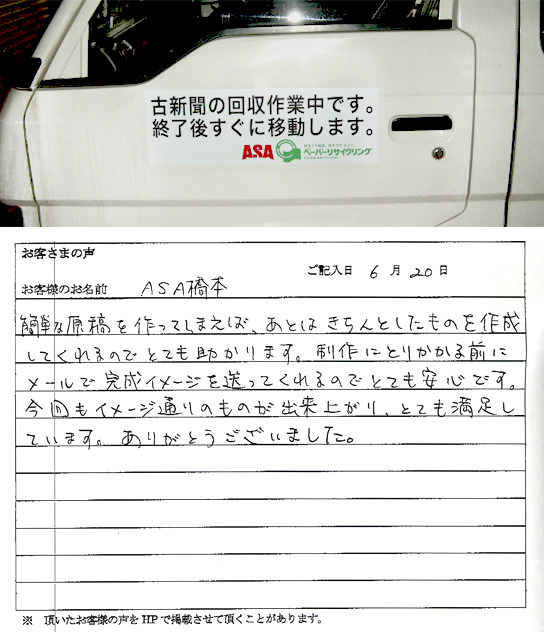 古新聞の回収作業中です。
終了後すぐに移動します。
ASA ペーパーリサイクリング
お客さまの声
ご記入日 6月20日
お客様のお名前 ASA橋本
簡単な原稿を作ってしまえば、あとはきちんとしたものを作成
してくれるのでとても助かります。制作にとりかかる前に
メールで完成イメージを送ってくれるのでとても安心です。
今回もイメージ通りのものが出来上がり、とても満足し
ています。ありがとうございました。
※ 頂いたお客様の声をHPで掲載させて頂くことがあります。